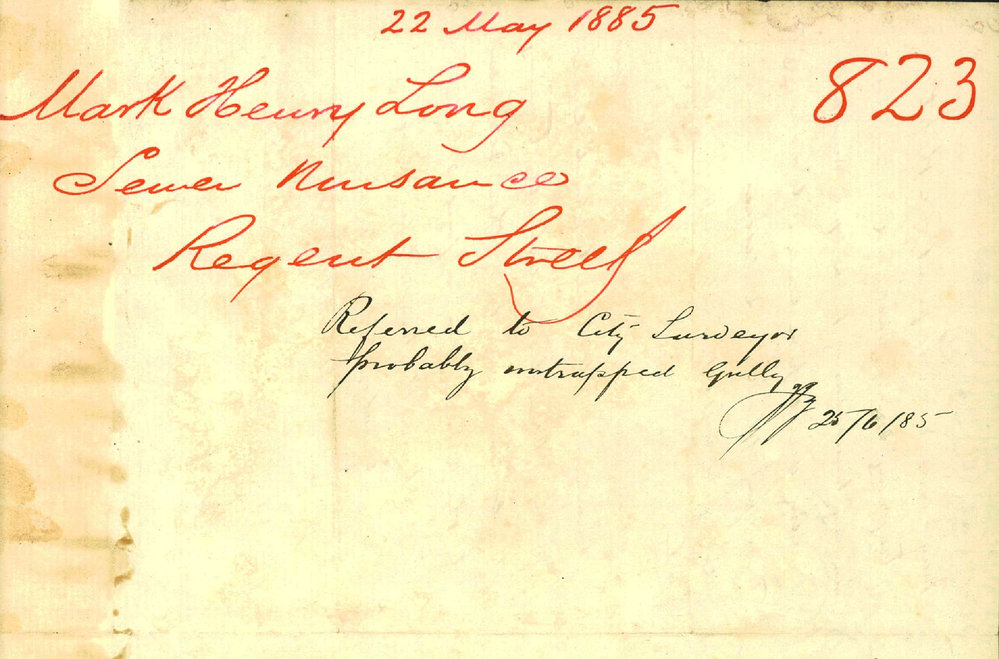 22 May 1885
823
Mark Henry Long
Sewer Nuisance
Regent Street
Referred to City Surveyor
probably untrapped Gully
25/6/85